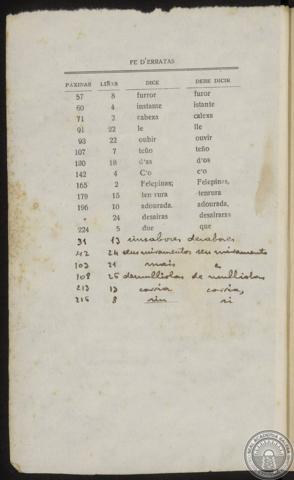 FE D'ERRATAS
PÁXINAS LIÑAS DICE DEBE DICIR
57 8 furror furor
60 4 instante istante
71 2 cabeza calexa
91 22 le lle
93 22 oubir ouvir
107 7 teño teño
130 18 d'as d'os
142 4 C'o c'o
165 2 Felepinas; Felepinas,
179 15 ten rura tenrura
196 10 adourada. adourada,
» 24 desairas desairaras
224 5 due que
31 13
42 24
103 21 mais e
108 25 de
213 13 corria corria,
216 8 sin si
REAL ACADEMIA GALEGA